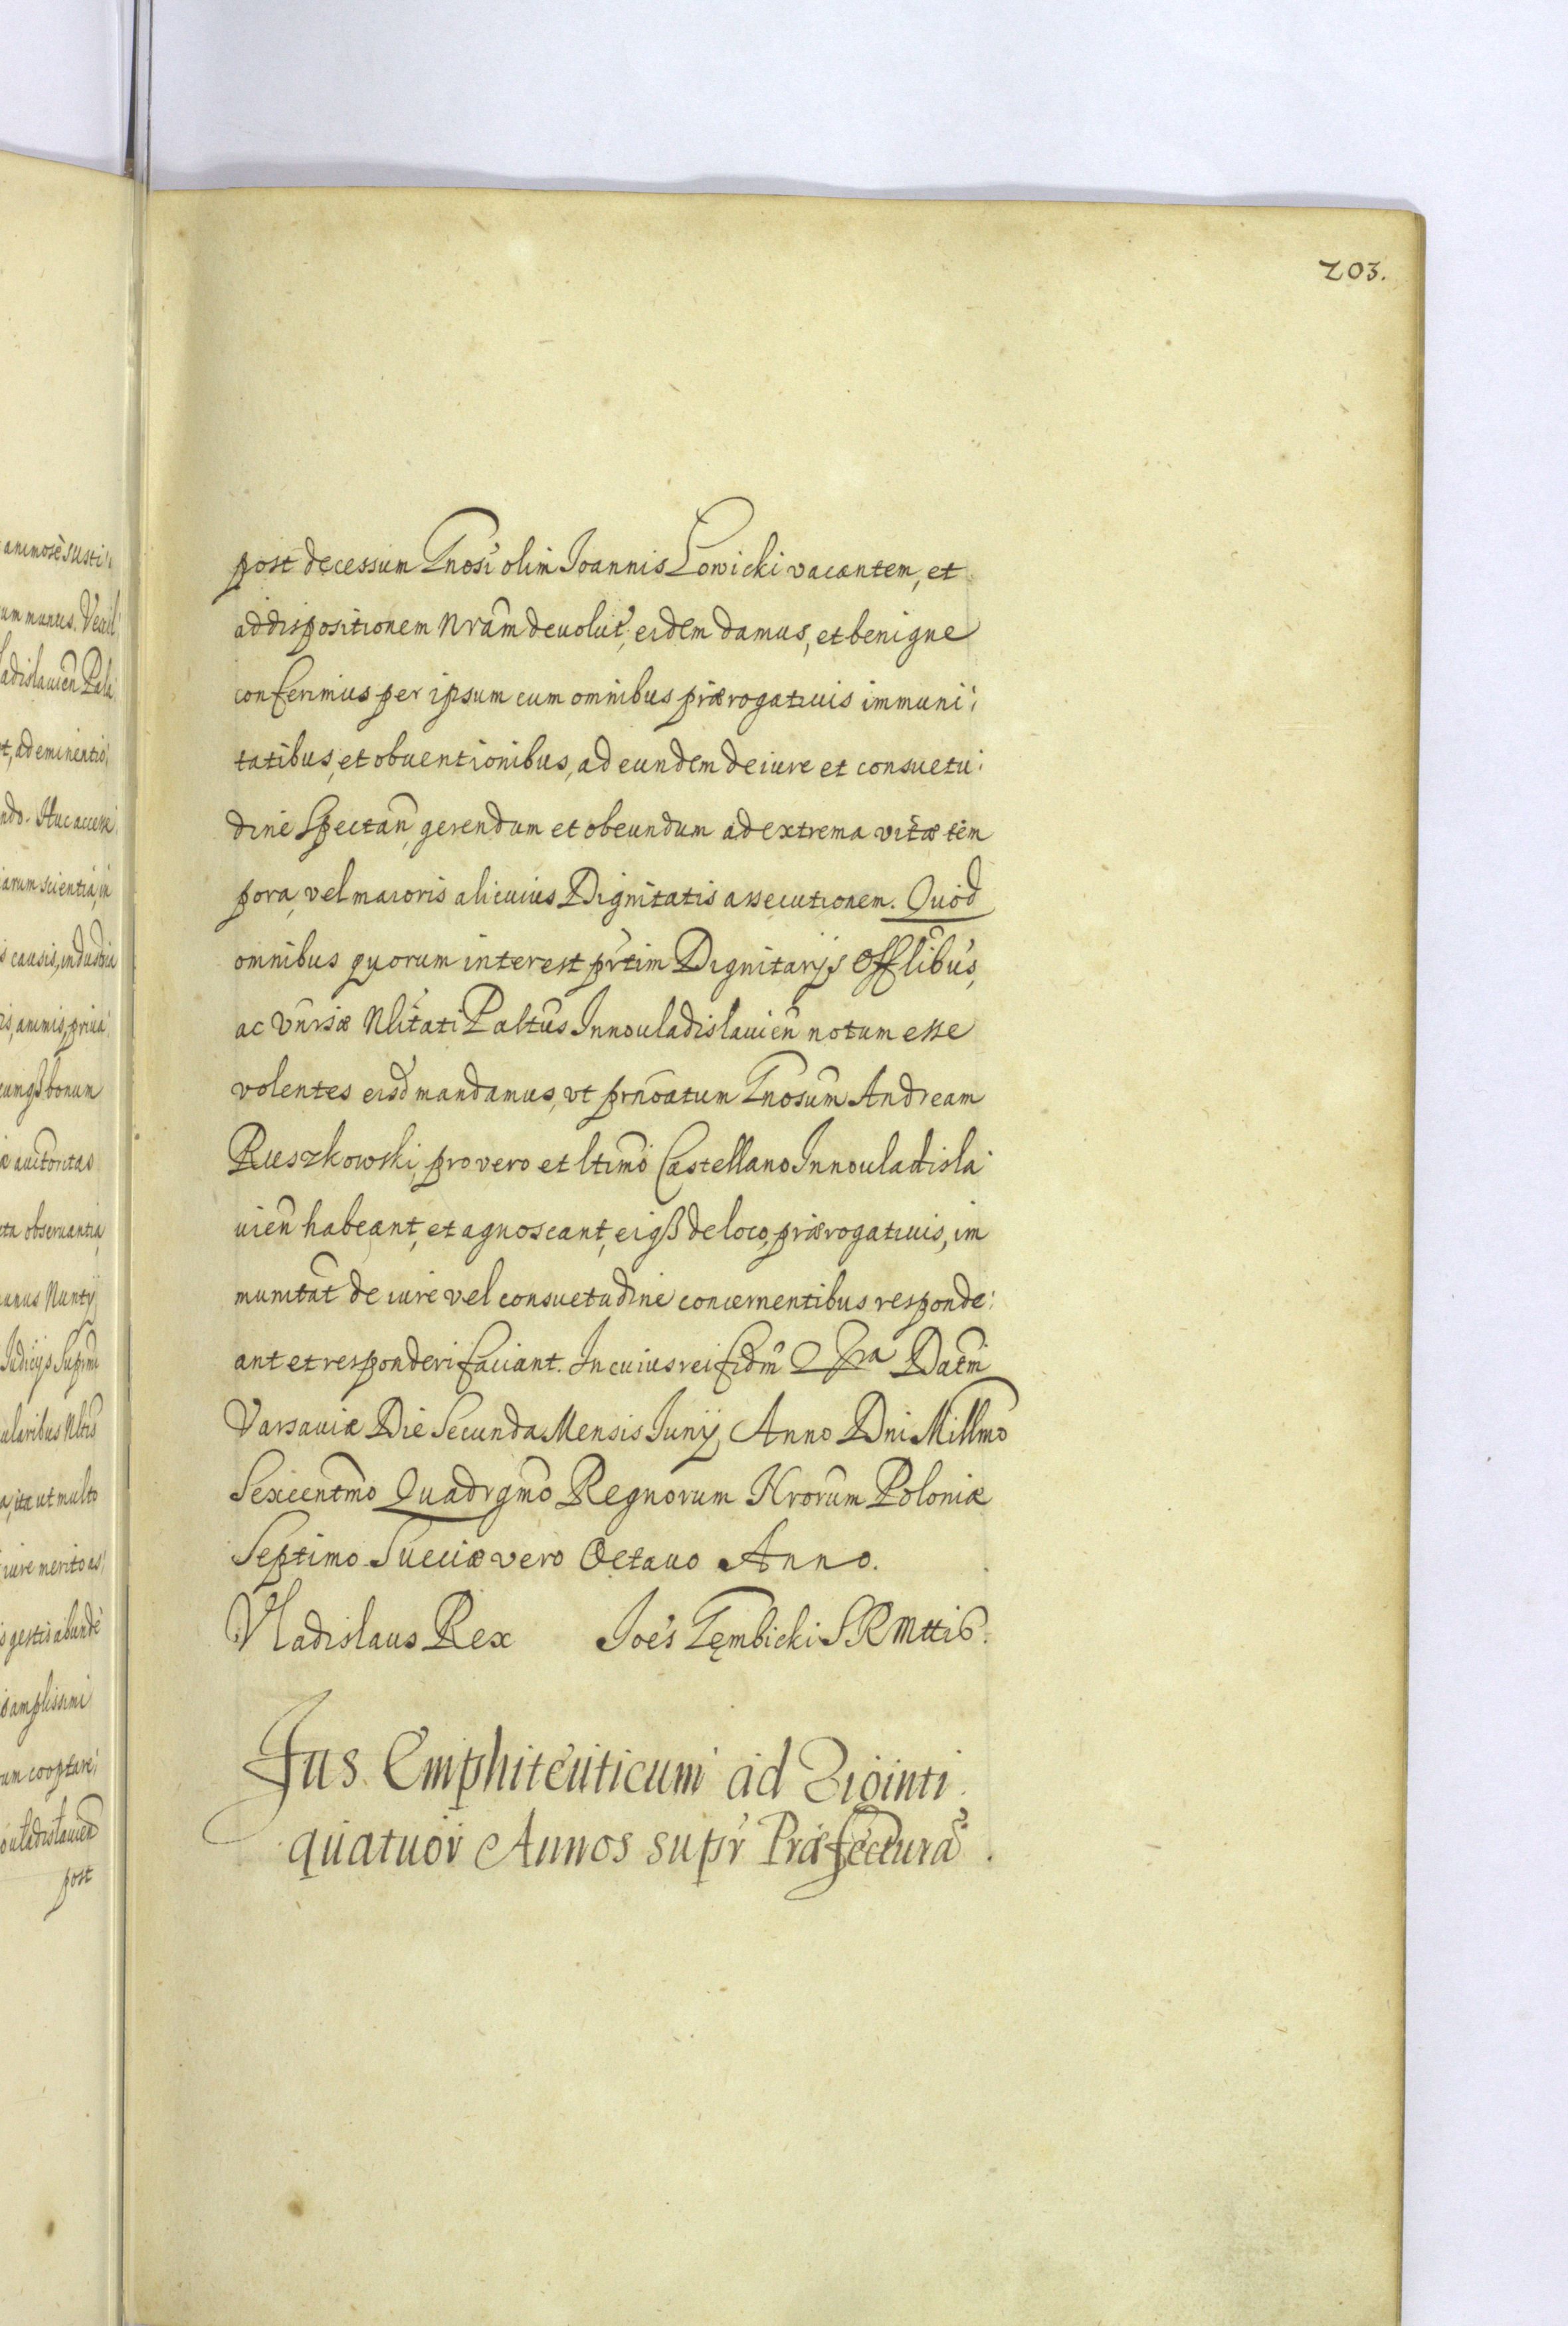 203.
post decessum Gnosi olim Joannis Łowicki vacantem, et
ad dispositionem nram devolut, eidem damus, et benigne
conferimus per ipsum cum omnibus prærogativis immuni:
tatibus, et obventionibus, ad eundem de iure et consuetu:
dine spectan, gerendum et obeundum ad extrema vitæ tem
pora, vel maioris alicuius Dignitatis assecutionem. Quod
omnibus quorum interest prtim Dignitarijs Offlibus,
ac Vnrsæ Nlitati Paltus Innouladislauien notum esse
volentes eisd mandamus, vt prnoatum Gnosum Andream
Ruszkowski, pro vero et ltimo Castellano Innouladisla:
uien habeant, et agnoscant, eiqß de loco, prærogatiuis, im
munitat de iure vel consuetudine concernentibus responde:
ant et responderi faciant. In cuius rei fidm Datm
Varsauiæ Die Secunda Mensis Junij, Anno Dni Millmo
Sexcentmo Quadrgmo Regnorum Nrorum Poloniæ
Septimo Sueciæ vero Octauo Anno.
Vladislaus Rex Joes Gembicki SRMttis.
Jus Emphiteuticum ad Viginti
quatuor Annos supr Præfectura.
animose susti:
um munus. Vexil
ladislauien Pala:
t, ad eminentio:
ndo. Huc accesse
iarum scientia, in
s causis, industria
is, animis, priua:
cumqß bonum
auctoritas
observantia,
Nuntij
Judicijs Suprmi
ularibus Nltis
a, ita ut multo
iure merito as:
s gestis abunde
amplissimi
um cooptare:
ouladislauien
post